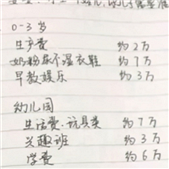 0-3岁
生产费 约2万
奶粉尿不湿衣鞋 约7万
早教娱乐 约3万
幼儿园
生活费、玩具类 约7万
兴趣班 约3万
学费 约6万